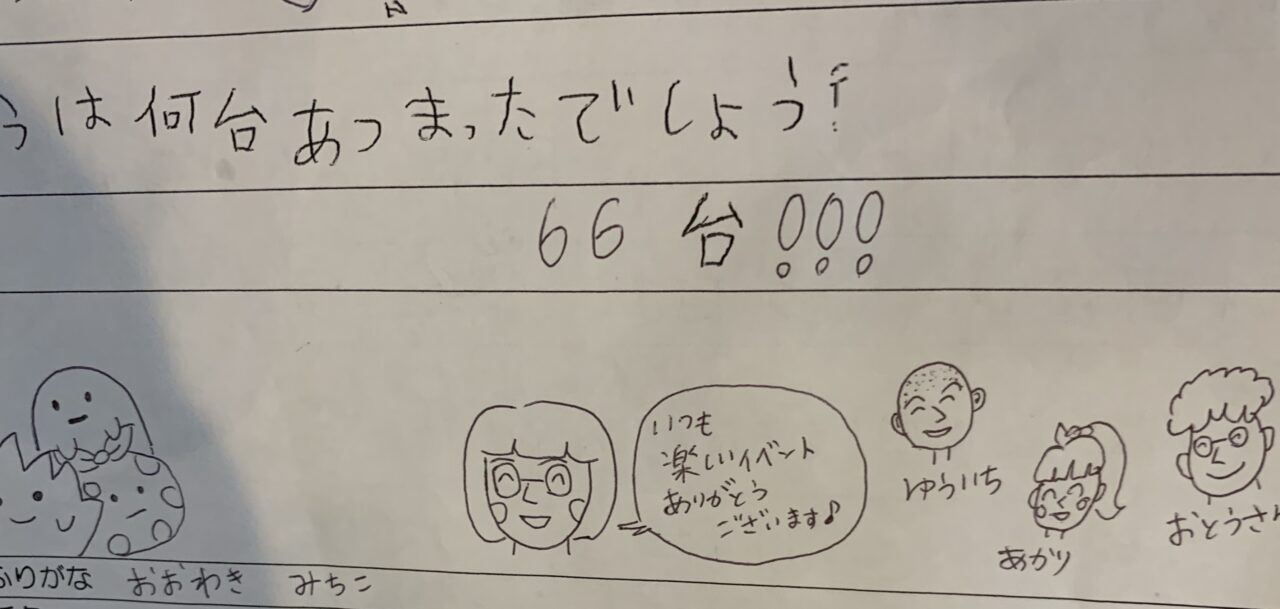 は何台あつまったでしょう?
66台!!!
いつも
楽しいイベント
ありがとう
ございます♪
ゆういち
あかり
おとうさん
ふりがな おおわき みちこ